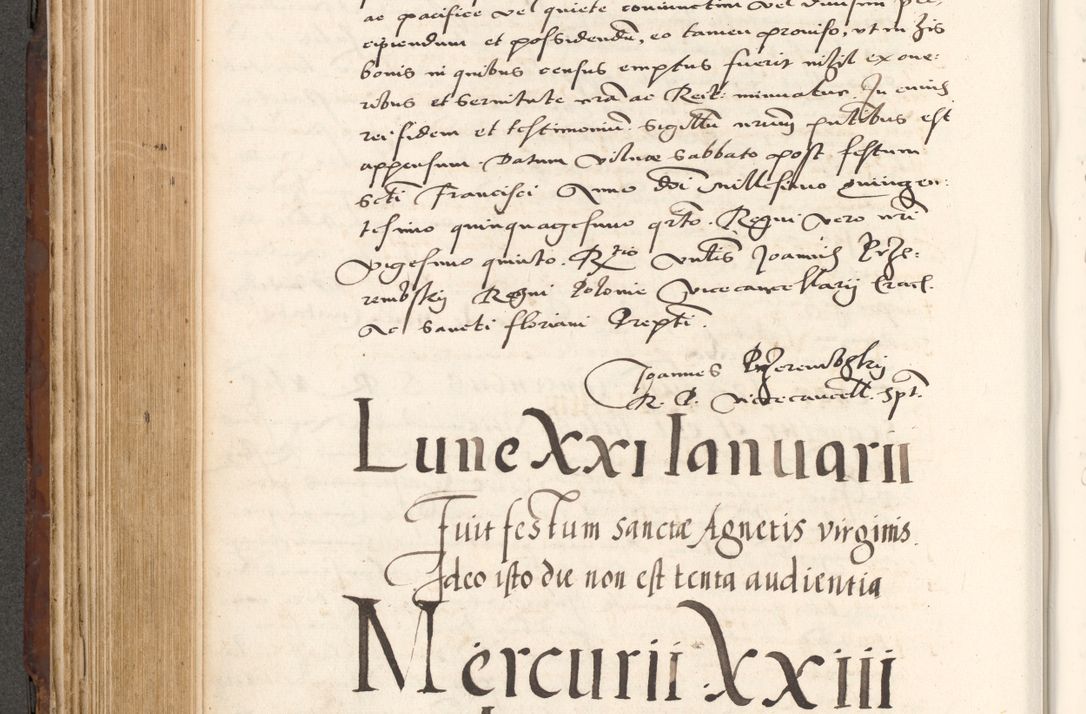 ac pacifice vel quiete coniunctim vel divisim per-
cipiendum et possidendū, eo tamen proviso, ut in his
bonis in quibus census emptus fuerit nihil ex one:
ribus et servitute nrā ac Reit: minuatur. In cuius
rei fidem et testimoniū Sigillū nrum pntibus est
appensum. Datum Vilnae Sabbato post festum
Scti Francisci Anno Dni Millesimo quingen:
tesimo quinquagesimo qrto. Regni vero nri
vigesimo quinto. Rtio Vntis Joannis Prze:
rembskij Regni Polonie Vicecancellarij Crac.
Ac Sancti Floriani Prepti.
Joannes Przerembskij
R. P. Vicecancell. spt.
Lune XXI Ianuarii
Fuit festum sanctæ Agnetis virginis.
Ideo isto die non est tenta audientia
Mercurii XXIII